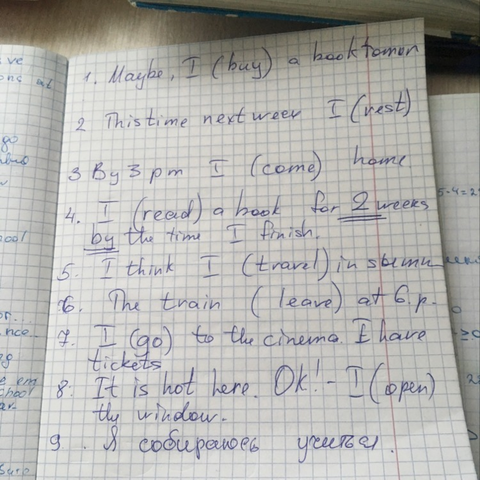 1. Maybe, I (buy) a book tomorr
2 This time next week I (rest)
3 By 3 pm I (come) home
4. I (read) a book for 2 weeks
by the time I finish.
5. I think I (travel) in
6. The train (leave) at 6.p.
7. I (go) to the cinema. I have
tickets
8. It is hot here. Ok! - I (open)
the window.
9. Я собираюсь учиться.